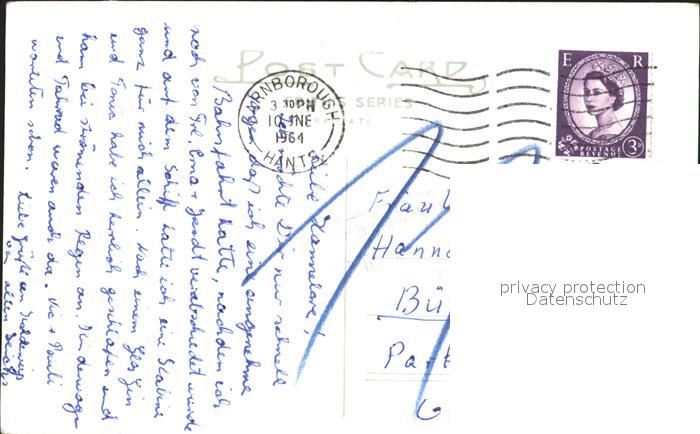 POST CARD
SERIES
FARNBOROUGH
3 30 PM
10 JNE
1964
HANTS
E R
POSTAGE
REVENUE
3D
Liebe Hannelore!
Dir nur schnell
daß ich eine angenehme
Bahnfahrt hatte, nachdem ich
noch von Frl. Erna + verabschiedet wurde
und auf dem Schiff hatte ich eine Kabine
ganz für mich allein. Nach einem Glas Gin
und Tonic habe ich herrlich geschlafen und
kam bei strömendem Regen an. Kinderwagen
und Fahrrad waren auch da. +
warteten schon. Liebe Grüße an
von allen
Frau
Hann
Bü
Part
privacy protection
Datenschutz